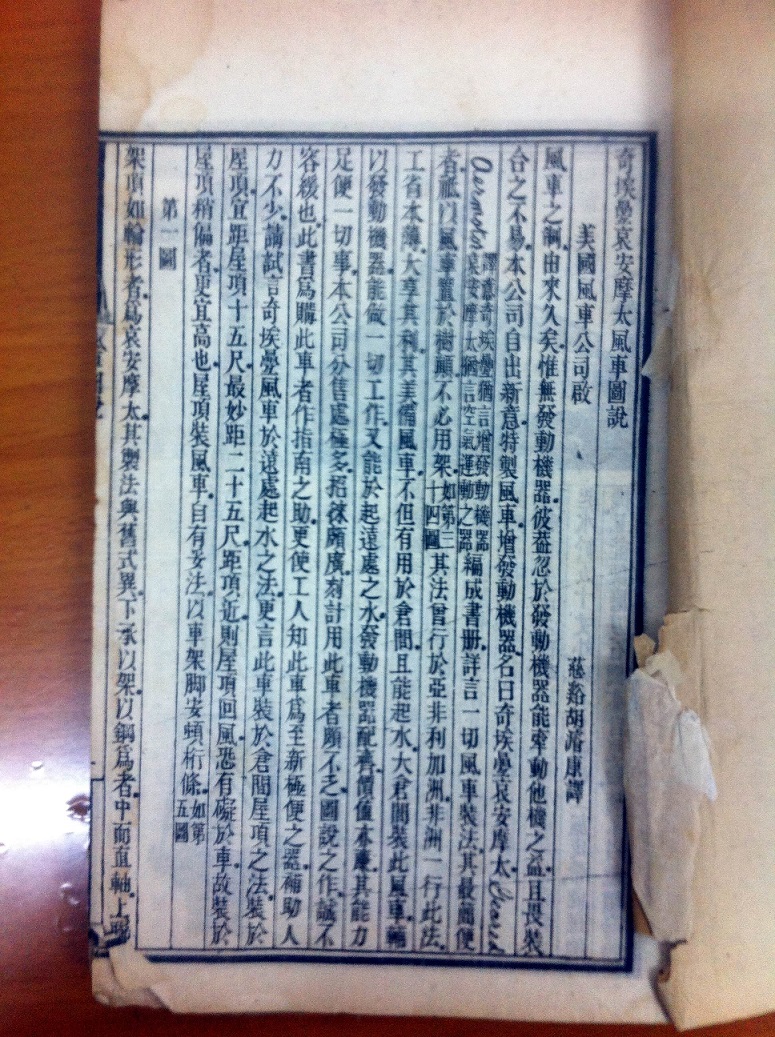 奇埃疊哀安摩太風車圖說
美國風車公司啟
慈谿胡濬康譯
風車之制由來久矣惟無發動機器彼葢忽於發動機器能牽動他機之益且畏裝
合之不易本公司自出新意特製風車增發動機器名曰奇埃疊哀安摩太Geared
Aermotor譯意奇埃疊猶言增發動機器哀安摩太猶言空氣運動之器編成書册詳言一切風車裝法其最簡便
者祗以風車置於樹顚不必用架如第三十四圖其法曾行於亞非利加洲非洲一行此法
工省本薄大享其利其美備風車不但有用於倉間且能起水大倉間裝此風車輔
以發動機器能做一切工作又能於起遠處之水發動機器配齊價值本廉其能力
足便一切事本公司分售處極多招徠頗廣刻計用此車者頗不乏圖說之作誠不
容緩也此書爲購此車者作指南之助更使工人知此車爲至新極便之器補助人
力不少請試言奇埃疊風車於遠處起水之法更言此車裝於倉間屋頂之法裝於
屋頂宜距屋頂十五尺最妙距二十五尺距頂近則屋頂回風恐有礙於車故裝於
屋頂稍偏者更宜高也屋頂裝風車自有妥法以車架脚安頓桁條如第五圖
第一圖
架頂如輪形者爲哀安摩太其製法與舊式異下承以架以鋼爲者中而直軸上